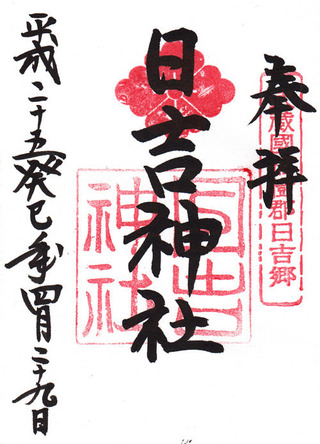 奉拝
蔵國
郡日吉郷
日吉神社
日吉神社
平成二十五癸巳年四月二十九日